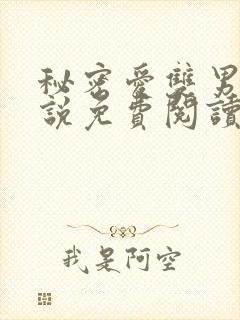 秘密愛雙男
說免費閱讀
我是阿空